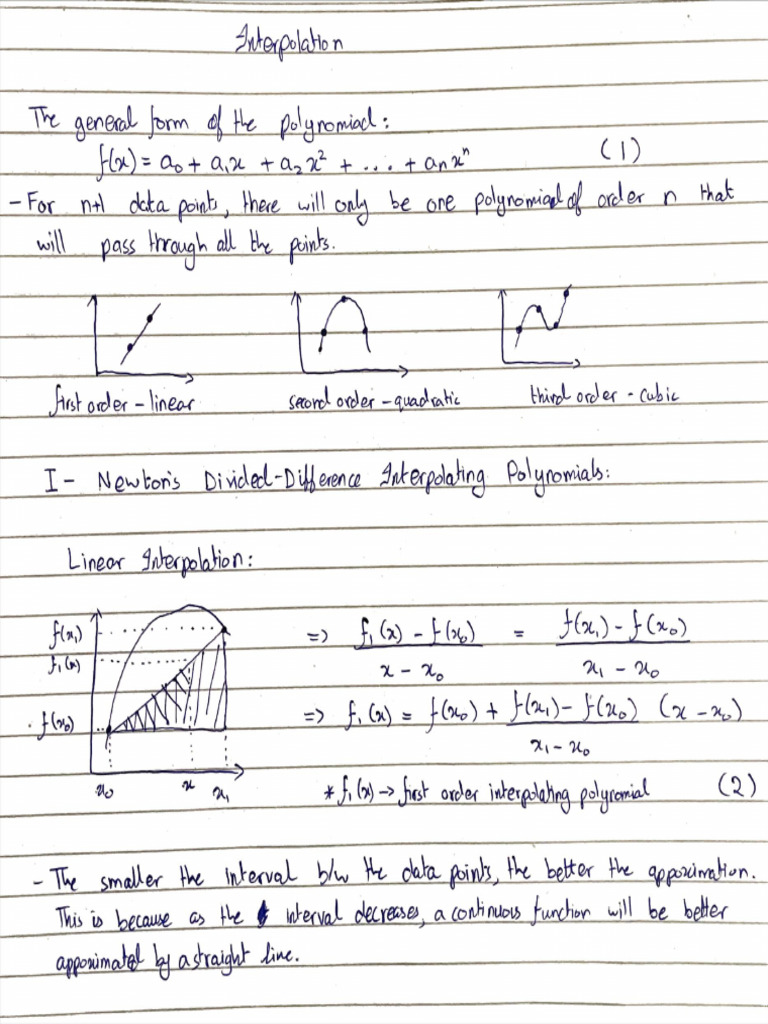 Interpolation
The general form of the polynomial:
f(x) = a₀ + a₁x + a₂x² + ... + aₙxⁿ (1)
- For n+1 data points, there will only be one polynomial of order n that
will pass through all the points.
first order - linear second order - quadratic third order - cubic
I - Newton's Divided-Difference Interpolating Polynomials:
Linear Interpolation:
f(x₁)
f₁(x)
f(x₀)
x₀ x x₁
=> f₁(x) - f(x₀) / x - x₀ = f(x₁) - f(x₀) / x₁ - x₀
=> f₁(x) = f(x₀) + f(x₁) - f(x₀) / x₁ - x₀ (x - x₀)
* f₁(x) → first order interpolating polynomial (2)
- The smaller the interval b/w the data points, the better the approximation.
This is because as the interval decreases, a continuous function will be better
approximated by a straight line.